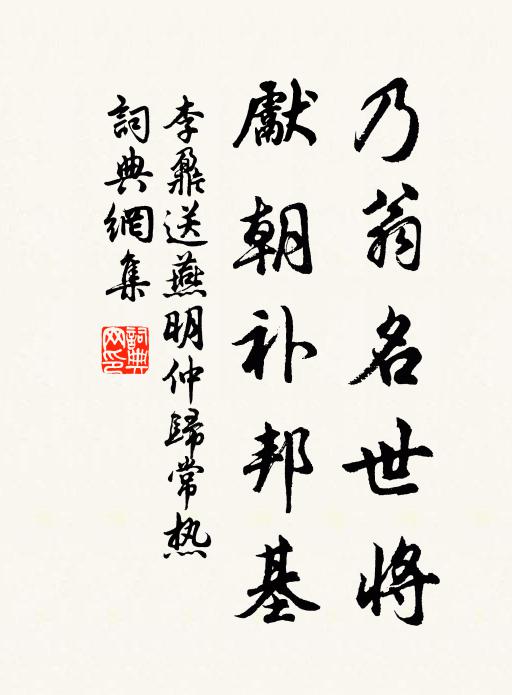 乃翁名世將
獻朝补邦基
李鼐送燕明仲歸常热
詞典網集
詞典网印